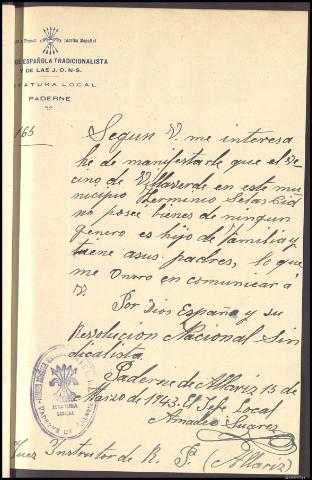 ¡Arriba Español
ESPAÑOLA TRADICIONALISTA
Y DE LAS J. O. N-S.
JEFATURA LOCAL
PADERNE
165
Segun V. me interesa
he de manifestarle que el ve-
cino de Villaverde en este mu-
nicipio Herminio Selas Cid
no posee bienes de ningun
genero es hijo de familia y
tiene asus padres, lo que
me Onoro en comunicar a
V.
Por Dios España y su
Revolucion Nacional Sin
dicalista.
Paderne de Allariz 15 de
Marzo de 1943. El Jefe Local
Amadeo Suarez
JEFATURA
LOCAL
PADERNE DE ALLARIZ
Juez Instrutor de R. P. (Allariz)